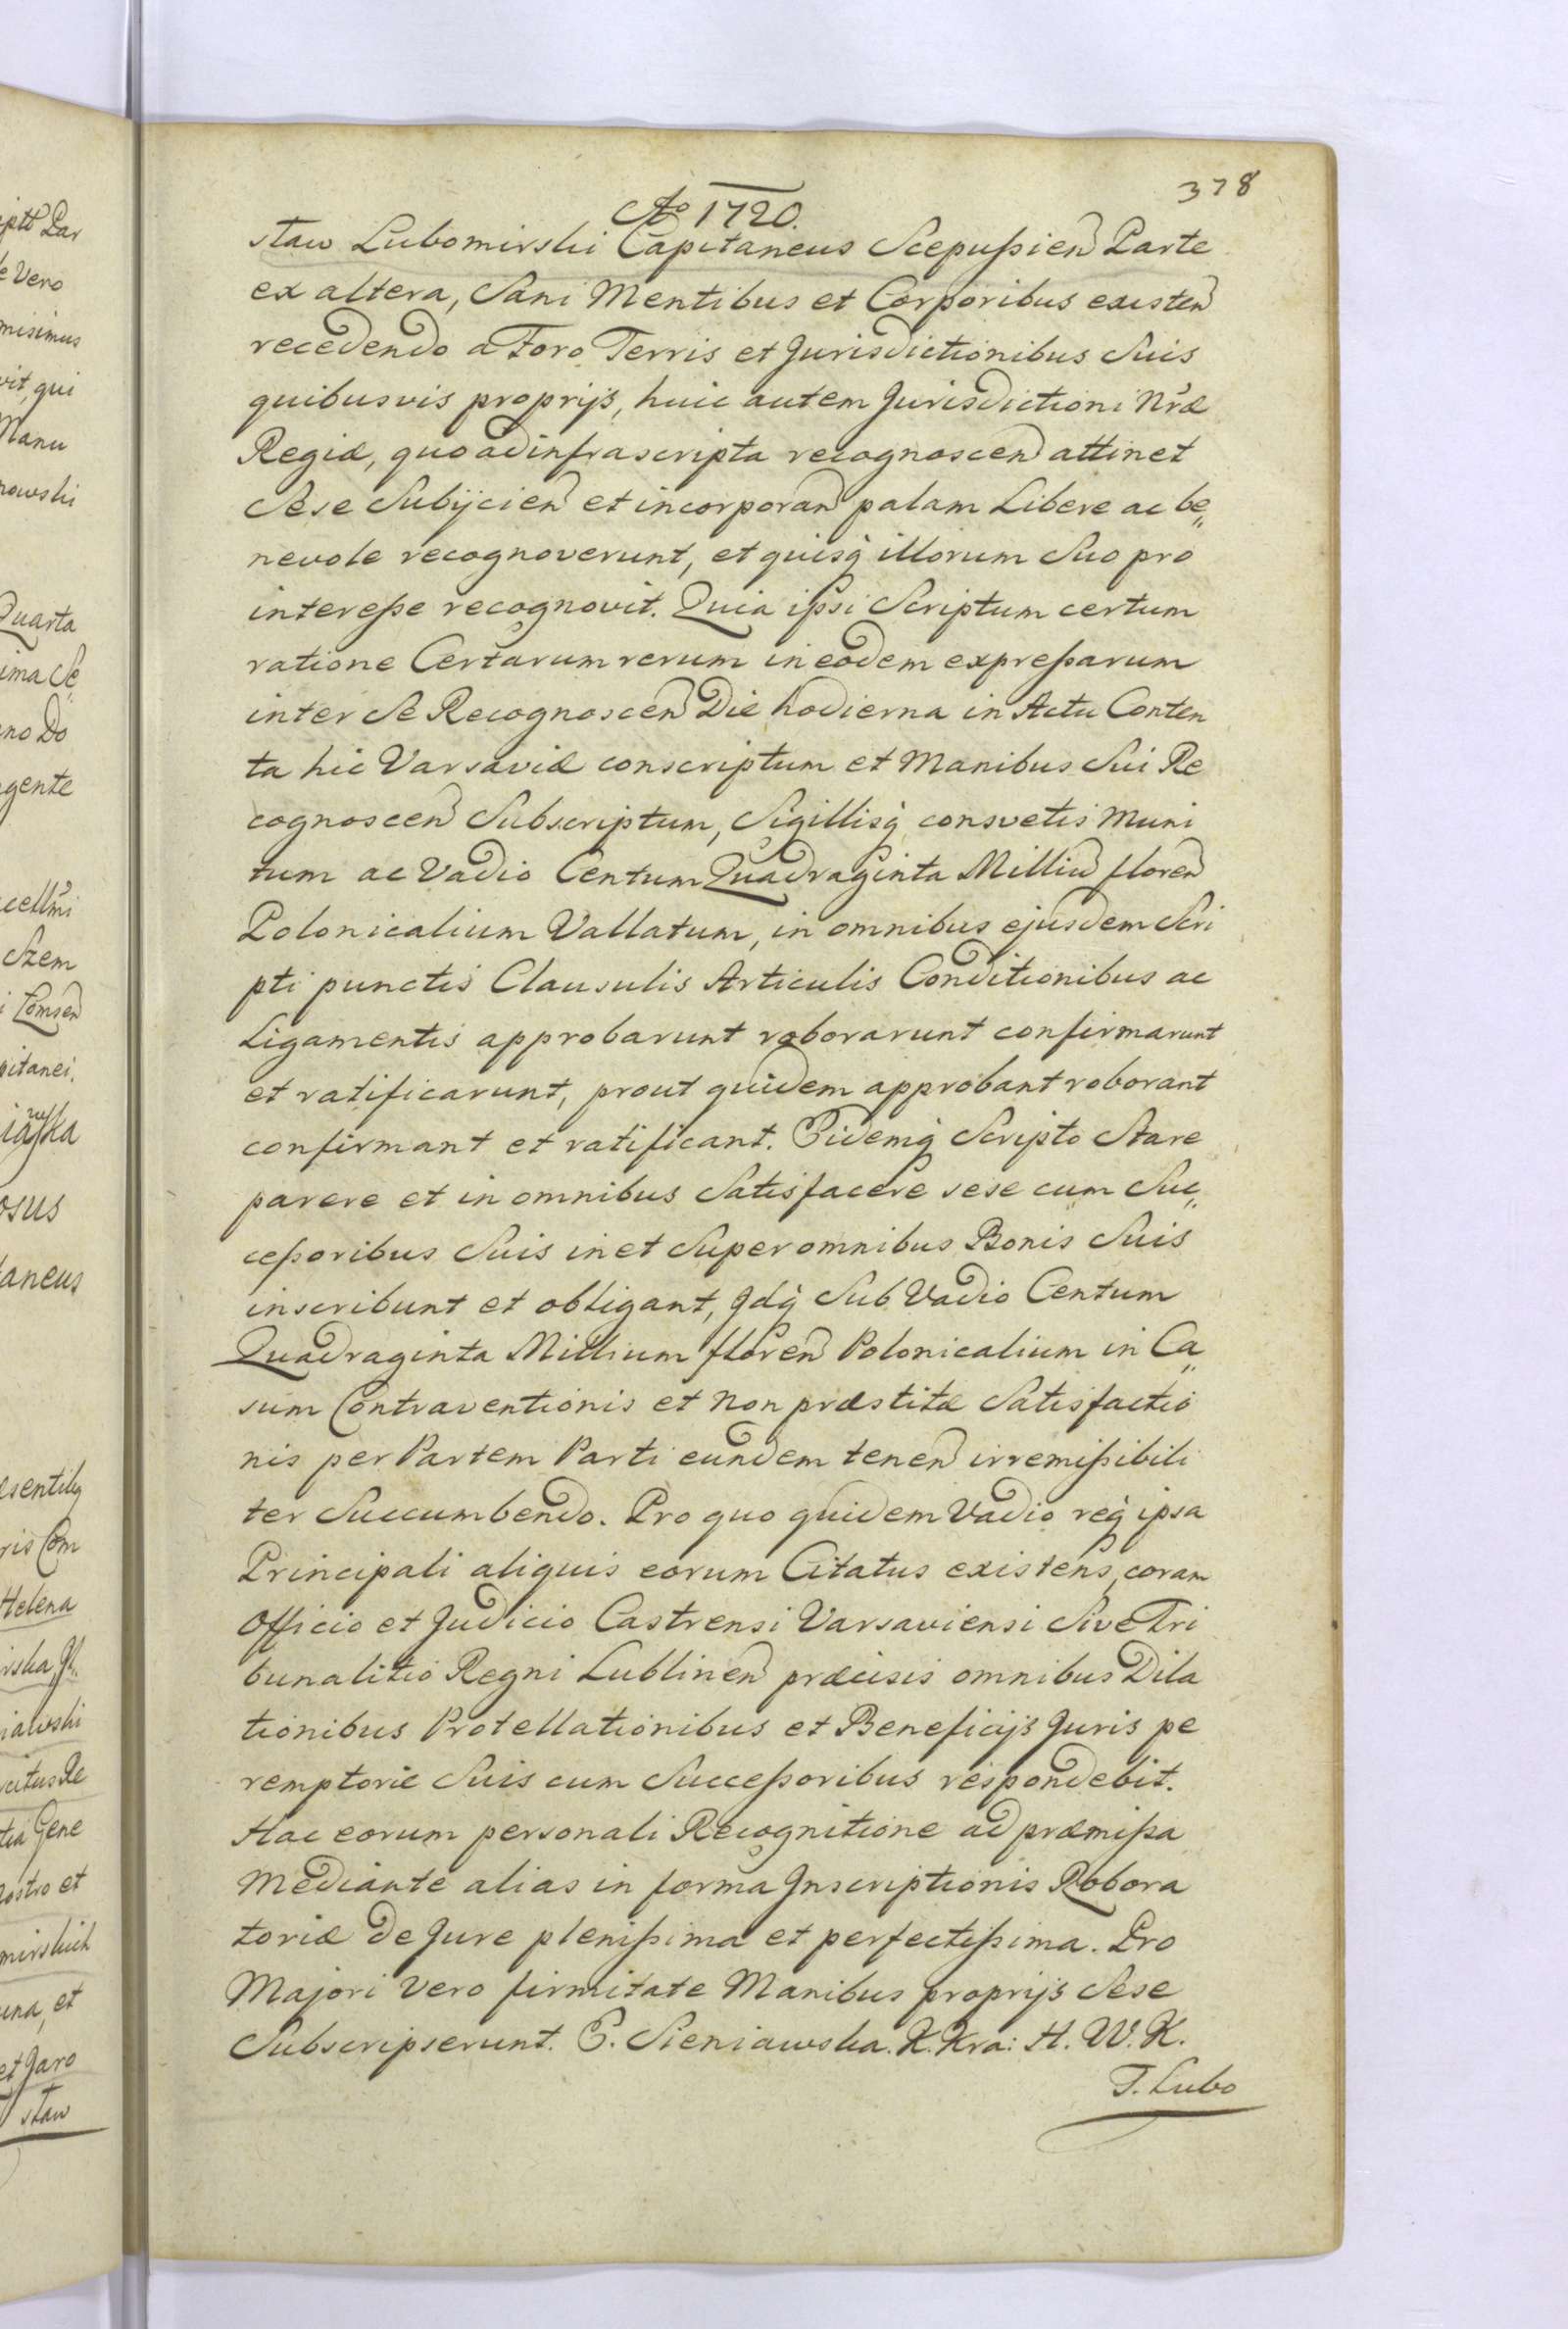 378
Ao 1720.
staw Lubomirski Capitaneus Scepußien Parte
ex altera, Sani Mentibus et Corporibus existen
recedendo a Foro Terris et Jurisdictionibus Suis
quibusvis proprijs, huic autem Jurisdictioni Nræ
Regiæ, quo ad infrascripta recognoscen attinet
Sese Subijcien et incorporan palam Libere ac be„
nevole recognoverunt, et quisq illorum Suo pro
intereße recognovit. Quia ipsi Scriptum certum
ratione Certarum rerum in eodem expreßarum
inter Se Recognoscen Die hodierna in Actu Conten
ta hic Varsaviæ conscriptum et Manibus Sui Re
cognoscen Subscriptum, Sigillisq consvetis Muni
tum ac Vadio Centum Quadraginta Milliu floren
Polonicalium Vallatum, in omnibus ejusdem Scri
pti punctis Clausulis Articulis Conditionibus ac
Ligamentis approbarunt roborarunt confirmarunt
et ratificarunt, prout quidem approbant roborant
confirmant et ratificant. Eidemq Scripto Stare
parere et in omnibus Satisfacere sese cum Suc„
ceßoribus Suis in et Super omnibus Bonis Suis
inscribunt et obligant, Jdq Sub Vadio Centum
Quadraginta Millium floren Polonicalium in Ca„
sum Contraventionis et Non præstitæ Satisfactio
nis per Partem Parti eundem tenen irremißibili
ter Succumbendo. Pro quo quidem Vadio req ipsa
Principali aliquis eorum Citatus existens, coram
Officio et Judicio Castrensi Varsaviensi Sive Tri
bunalitio Regni Lublinen præcisis omnibus Dila
tionibus Protellationibus et Beneficijs Juris pe
remptorie Suis cum Succeßoribus respondebit.
Hac eorum personali Recognitione ad præmißa
Mediante alias in forma Jnscriptionis Robora
toriæ De Jure plenißima et perfectißima. Pro
Majori vero firmitate Manibus proprijs Sese
Subscripserunt. E. Sieniawska. K. Kra: H. W. K.
T. Lubo